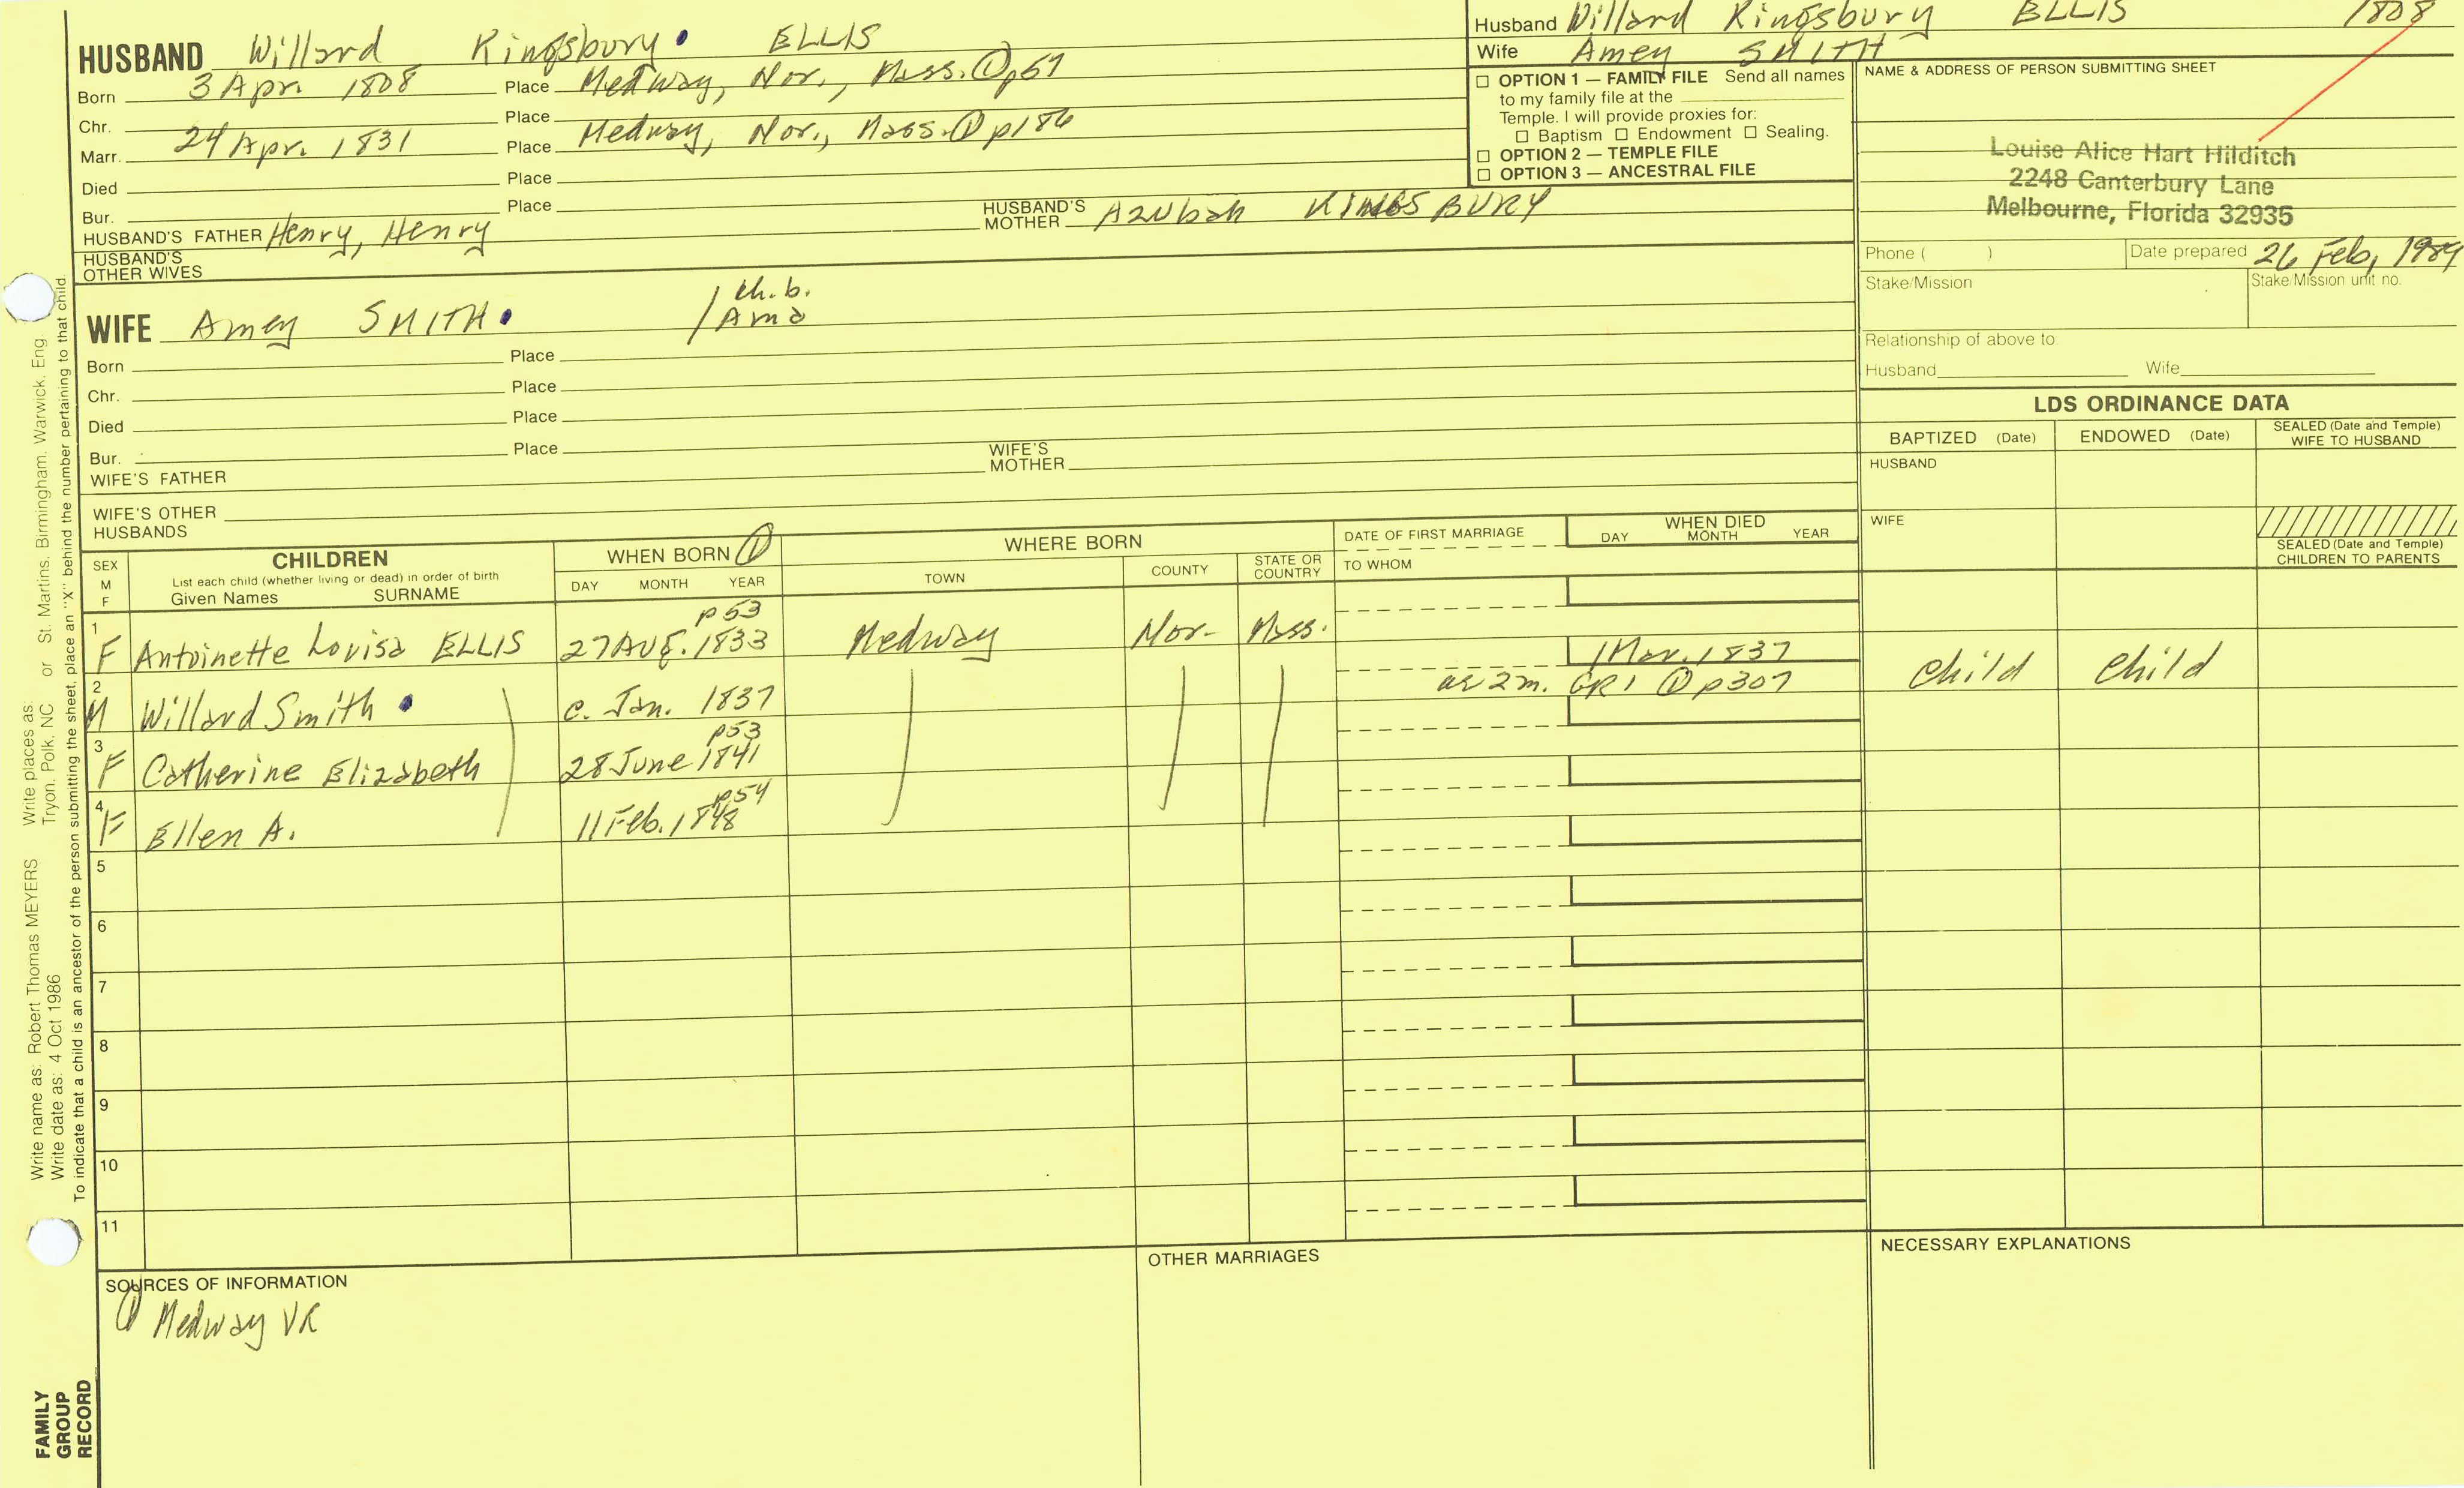 HUSBAND Willard Kingsbury ELLIS
Born 3 Apr. 1808 Place Medway, Nor., Mass. ① p67
Chr. Place
Marr. 24 Apr. 1831 Place Medway, Nor., Mass. ① p186
Died Place
Bur. Place
HUSBAND'S FATHER Henry, Henry HUSBAND'S MOTHER Azubah KINGSBURY
HUSBAND'S OTHER WIVES
WIFE Amey SMITH / Ch. b. / Ama
Born Place
Chr. Place
Died Place
Bur. Place
WIFE'S FATHER WIFE'S MOTHER
WIFE'S OTHER HUSBANDS
Husband Willard Kingsbury ELLIS 1808
Wife Amey SMITH
☐ OPTION 1 — FAMILY FILE Send all names
to my family file at the
Temple. I will provide proxies for:
☐ Baptism ☐ Endowment ☐ Sealing.
☐ OPTION 2 — TEMPLE FILE
☐ OPTION 3 — ANCESTRAL FILE
NAME & ADDRESS OF PERSON SUBMITTING SHEET
Louise Alice Hart Hilditch
2248 Canterbury Lane
Melbourne, Florida 32935
Phone ( ) Date prepared 26 Feb, 1989
Stake/Mission Stake/Mission unit no.
Relationship of above to
Husband Wife
LDS ORDINANCE DATA
BAPTIZED (Date) ENDOWED (Date) SEALED (Date and Temple) WIFE TO HUSBAND
HUSBAND
WIFE
SEALED (Date and Temple) CHILDREN TO PARENTS
SEX M F
CHILDREN
List each child (whether living or dead) in order of birth
Given Names SURNAME
WHEN BORN ①
DAY MONTH YEAR
WHERE BORN
TOWN COUNTY STATE OR COUNTRY
DATE OF FIRST MARRIAGE
TO WHOM
WHEN DIED
DAY MONTH YEAR
p53
1 F Antoinette Lovisa ELLIS 27 Aug. 1833 Medway Nor. Mass.
1 Mar. 1837
2 M Willard Smith c. Jan. 1837 ae 2m. GR1 ① p307 Child Child
p53
3 F Catherine Elizabeth 28 June 1841
p54
4 F Ellen A. 11 Feb. 1848
5
6
7
8
9
10
11
SOURCES OF INFORMATION
① Medway VR
OTHER MARRIAGES
NECESSARY EXPLANATIONS
Write name as: Robert Thomas MEYERS Write places as: St. Martins, Birmingham, Warwick, Eng.
Write date as: 4 Oct 1986 Tryon, Polk, NC or
To indicate that a child is an ancestor of the person submitting the sheet, place an "X" behind the number pertaining to that child.
FAMILY
GROUP
RECORD